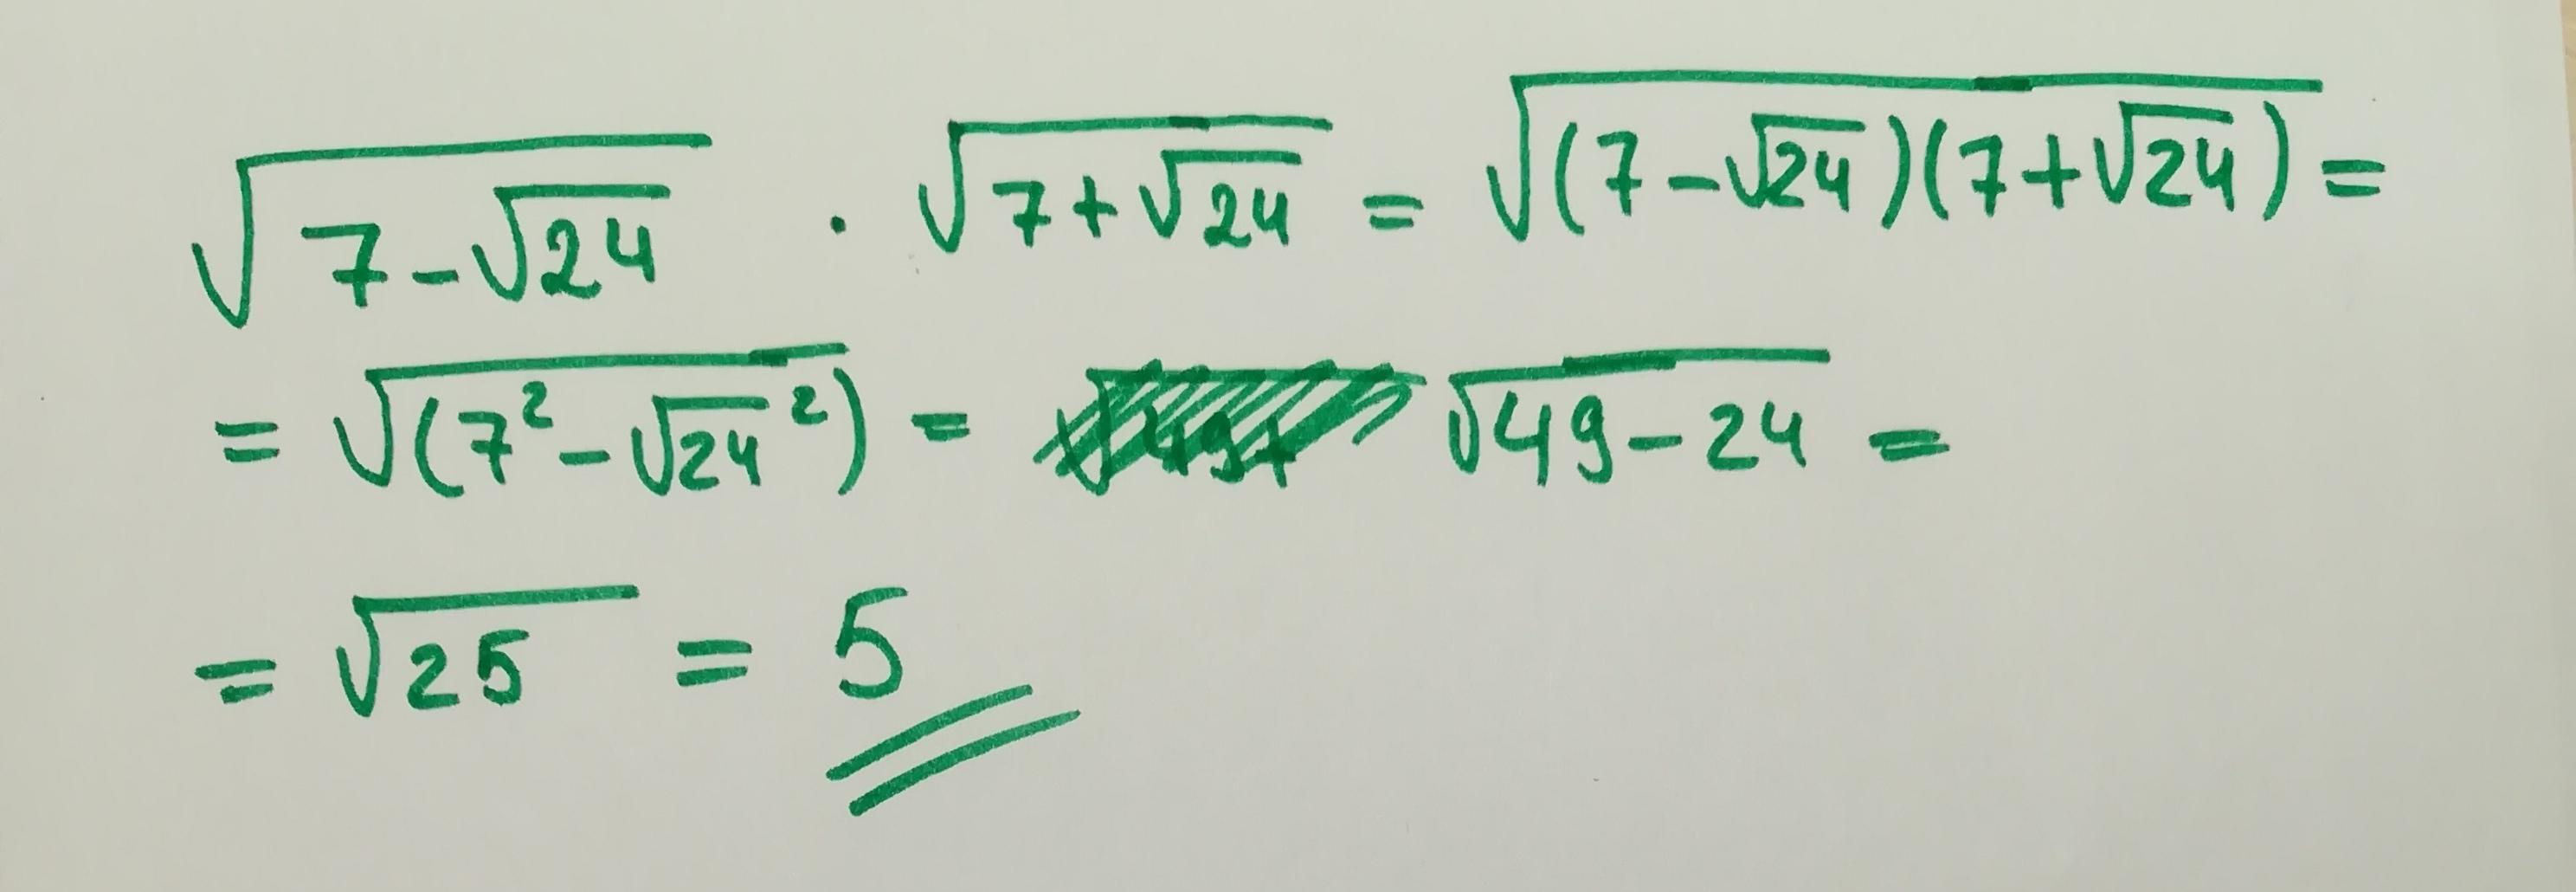 √(7-√24) · √(7+√24) = √((7-√24)(7+√24)) =
= √((7²-√24²)) = √(49-24) =
= √25 = 5